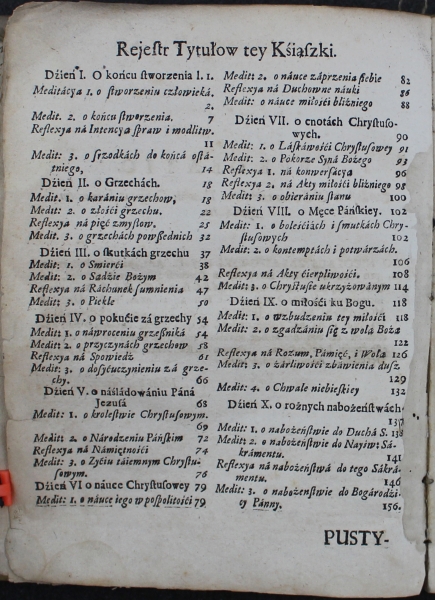 Rejestr Tytułow tey Kśiąszki.
Dźień I. O końcu stworzenia l. 1.
Meditácya 1. o stworzeniu człowieká.
2.
Medit. 2. o końcu stworzenia. 7
Reflexya ná Intencya spraw i modlitw.
11
Medit: 3. o srzodkách do końcá ostá-
tniego, 14
Dźień II. o Grzechách. 18
Medit. 1. o karániu grzechow, 18
Medit. 2. o złośći grzechu. 22
Reflexya ná pięć zmysłow. 25
Medit. 3. o grzechách powszednich 32
Dźień III. o skutkách grzechu 37
Medit: 1. o Smierći 38
Medit: 2. o Sądźie Bożym 42
Reflexya ná Ráchunek sumnienia 47
Medit: 3. o Piekle 50
Dźień IV. o pokućie zá grzechy 54
Medit: 1. o náwroceniu grzeßniká 54
Medit: 2. o przyczynách grzechow 58
Reflexya ná Spowiedź 61
Medit: 3. o dosyćuczynieniu zá grze-
chy. 66
Dźień V. o náśládowániu Páná
Jezusá 68
Medit: 1. o krolestwie Chrystusowym.
69
Medit: 2. o Národzeniu Páńskim 72
Reflexya ná Námiętnośći 74
Medit: 3. o Zyćiu táiemnym Chrystu-
sowym. 76
Dźień VI o náuce Chrystusowey 79
Medit: 1. o náuce iego w pospolitośći 79
Medit: 2. o náuce záprzenia śiebie 82
Reflexya ná Duchowne náuki 86
Medit: o náuce miłośći bliźniego 88
Dźień VII. o cnotách Chrystuso-
wych. 90
Medit: 1. o Láskáwośći Chrystusowey 91
Medit: 2. o Pokorze Syná Bożego 93
Reflexya 1. ná konwersácya 96
Reflexya 2. ná Akty miłośći bliźniego 98
Medit: 3. o obierániu stanu 100
Dźień VIII. o Męce Páńskiey. 102
Medit: 1. o boleśćiách i smutkách Chry-
stusowych 102
Medit: 2. o kontemptách i potwárzách.
106
Reflexya ná Akty ćierpliwośći. 108
Medit: 3. o Chrystuśie ukrzyżowánym 114
Dźień IX. o miłośći ku Bogu. 118
Medit: 1. o wzbudzeniu tey miłośći 118
Medit: 2. o zgadzániu się z wolą Boża
122
Reflexya ná Rozum, Pámięć, i Wola 126
Medit: 3. o żárliwośći zbáwienia dusz
129
Medit: 4. o Chwale niebieskiey 132
Dźień X. o rożnych nabożeństwách
137
Medit: 1. o nabożeństwie do Duchá S. 138
Medit: 2. o nabożeństwie do Nayśwt Sá-
krámentu. 141
Reflexya ná nabożeństwá do tego Sákrá-
mentu. 146
Medit: 3. o nabożeństwie do Bogárodźi-
cy Pánny. 156.
PUSTY-